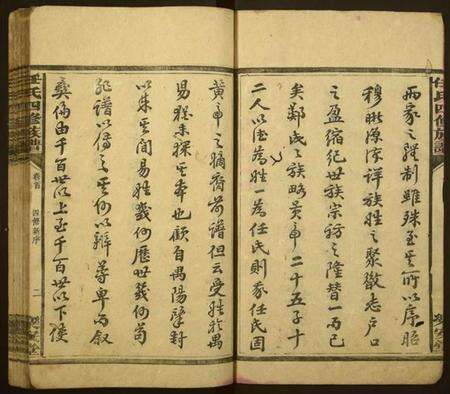 任氏四修族譜
兩家之體制雖殊至其所以序昭
穆晰源流詳族姓之聚散志戶口
之盈縮紀世族宗祊之隆替一而已
矣鄭氏之族略黃帝二十五子十
二人以德為姓一為任氏則我任氏固
黃帝之嫡裔前譜但云受姓於禹
易未探其本也顧自禹陽肇封
以來其間易姓幾何歷世幾何苟
非譜以傳之其何以辨尊卑而叙
彞倫由千百世以上至千百世以下使
任氏四修族譜
卷首
四修新序
二
堂